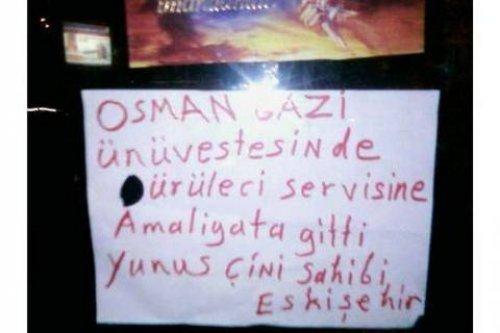 OSMAN GAZİ
ünüvestesinde
ürüleci servisine
Amaliyata gitti
Yunus Çini Sahibi
Eskişehir